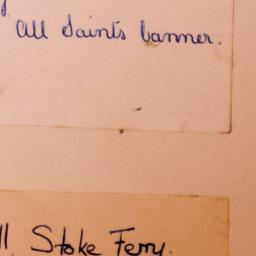 all Saints banner.
Stoke Ferry.